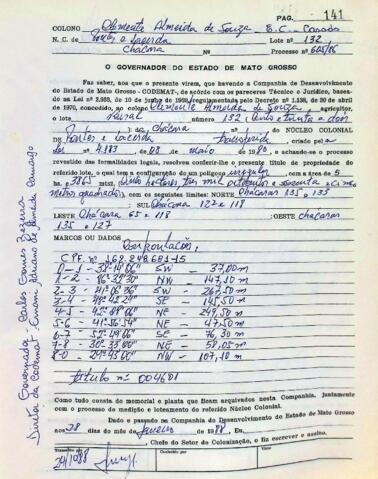 PAG. 141
COLONO Clemente Almeida de Souza, B.C. Casado
N. C. de Pontes e Lacerda Lote nº 132
Chácara Processo nº 605/86
O GOVERNADOR DO ESTADO DE MATO GROSSO
Faz saber, aos que o presente virem, que havendo a Companhia de Desenvolvimento
do Estado de Mato Grosso - CODEMAT-, de acôrdo com os pareceres Técnico e Jurídico, basea-
dos na Lei nº 2.903, de 10 de junho de 1969, regulamentada pelo Decreto nº 1.138, de 20 de abril
de 1970, concedido, ao colono Clemente Almeida de Souza, agricultor,
o lote Rural número 132 (cento e trinta e dois
Chácara do NÚCLEO COLONIAL
de Pontes e Lacerda transferida, criado pela
Lei nº 4.183 de 08 de maio 1980, e achando-se o processo
revestido das formalidades legais, resolveu conferir-lhe o presente título de propriedade do
referido lote, o qual tem a configuração de um polígono irregular, com a área de 5
ha. e 3865 mts.
metros quadrados), com os seguintes limites: NORTE Chácaras 135, 133
: SUL Chácara 127 e 118
LESTE Chácara 65 e 118 : OESTE chácaras
135 e 127
MARCOS OU DADOS
C.P.F. nº 162.248.681-15
0-1 - SW - 37,00m
1-2 - NW - 147,10m
2-3 - SW - 267,50m
3-4 - SE - 145,50m
4-5 - NE - 249,50m
5-6 - NE - 47,50m
6-7 - SE - 76,30m
7-8 - NE - 58,05m
8-0 - NW - 107,10m
título nº 004601
Como tudo consta do memorial e planta que ficam arquivados nesta Companhia, juntamente
com o processo de medição e loteamento do referido Núcleo Colonial.
Dado e passado na Companhia do Desenvolvimento do Estado de Mato Grosso
aos 28 dias do mês de Janeiro de 1988, Eu,
, Chefe do Setor de Colonização, o fiz escrever e assino.
Transcrito por
Conferido por
Visto
Governador - Carlos Gomes Bezerra
Diretor da Codemat - Adriano de Almeida Camargo